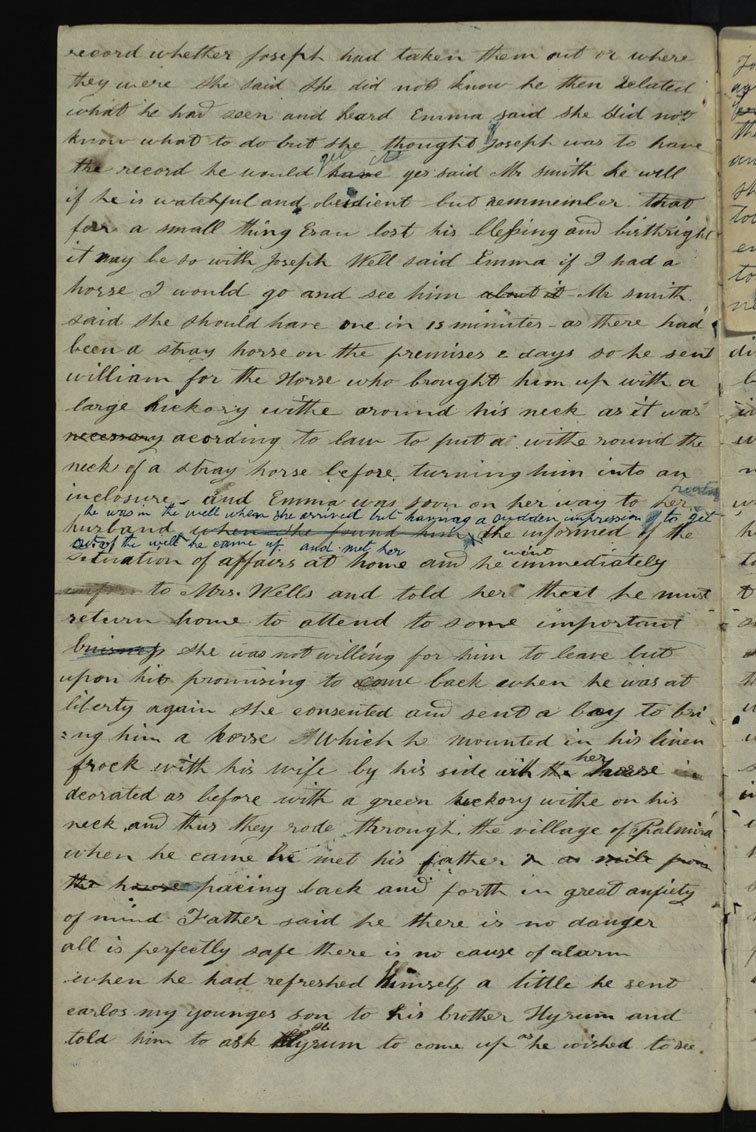 record whether Joseph had taken them out or where
they were she said she did not know he then related
what he had seen and heard Emma said she did not
know what to do but she thought if Joseph was to have
get it
the record he would have yes said Mr Smith he will
if he is watchful and obeidient but remmember that
for a small thing Esau lost his blessing and birthright
it may be so with Joseph Well said Emma if I had a
horse I would go and see him about it Mr Smith
said she should have one in 15 minutes as there had
been a stray horse on the premises 2 days so he sent
william for the Horse who brought him up with a
large hickory withe around his neck as it was
necessary acording to law to put a withe round the
neck of a stray horse before turning him into an
inclosure and Emma was soon on her way to her
he was in the well when she arrived but having a sudden impression to get
husband when she found him she informed of the
out of the well he came up and met her
Situation of affairs at home and he went immediately
to Mrs. Wells and told her that he must
return home to attend to some important
buisness she was not willing for him to leave but
upon his promising to come back when he was at
liberty again she consented and sent a boy to bri
=ng him a horse Which he mounted in his linen
frock with his wife by his side with the her horse
deorated as before with a green hickory withe on his
neck and thus they rode through the village of Palmira
when he came he met his father a mile from
the house pacing back and forth in great anxiety
of mind Father said he there is no danger
all is perfectly safe there is no cause of alarm
when he had refreshed himself a little he sent
carlos my younges son to his brother Hyrum and
told him to ask Hyrum to come up as he wished to see